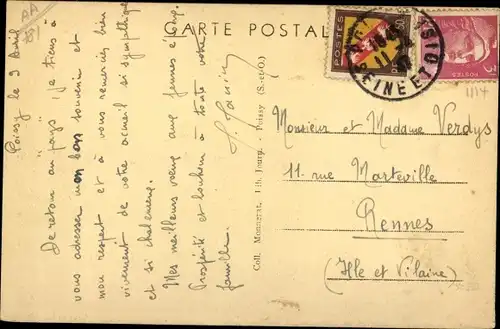 CARTE POSTALE
Poissy le 9 Avril
De retour au "pays" je tiens à
vous adresser mon bon souvenir et
mon respect et à vous remercier bien
vivement de votre accueil si sympathique
et si chaleureux.
Mes meilleurs vœux aux jeunes époux.
Prospérité et bonheur à toute votre
famille.
Coll. Monnerat. Lib. Journ. Poissy (S.-et-O.)
POSTES
SEINE ET OISE
3
POSTES
1117
Monsieur et Madame Verdys
11 rue Marteville
Rennes
(Ille et Vilaine)